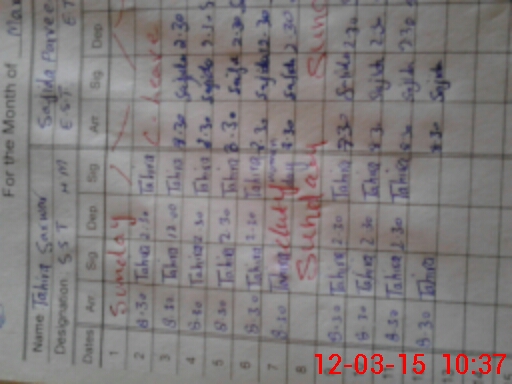 For the Month of Mar
Name Tahira Sarwar Sajida Parveen
Designation. S S T H M E S T E T
Dates Arr. Sig Dep. Sig Arr. Sig. Dep.
1 Sunday
2 8.30 Tahira 2.30 Tahira C. leave
3 8.30 Tahira 12.00 Tahira 8.30 Sajida 2.30
4 8.30 Tahira 2.30 Tahira 8.30 Sajida 2.30
5 8.30 Tahira 2.30 Tahira 8.30 Sajida 2.30
6 8.30 Tahira 2.30 Tahira 8.30 Sajida 12.30
7 8.30 Tahira duty 8.30 Sajida 2.30
8 Sunday Sun
8.30 Tahira 2.30 Tahira 7.30 Sajida 2.30
8.30 Tahira 2.30 Tahira 8.30 Sajida 2.30
8.30 Tahira 2.30 Tahira 8.30 Sajida 2.30
8.30 Tahira 8.30 Sajida
12-03-15 10:37